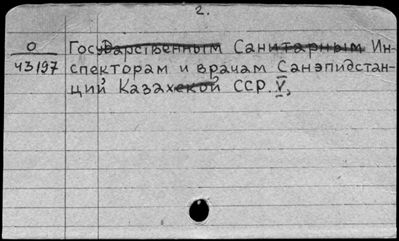 2.
О Государственным Санитарным Ин-
43197 спекторам и врачам Санэпидстан-
ций Казахской ССР. V,